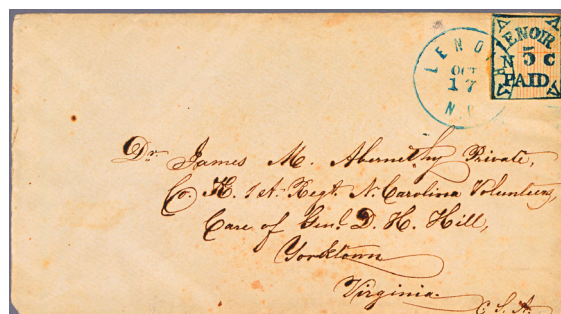 LENOIR
OCT
17
N.C
LENOIR
N 5 C
PAID
Dr. James M. Abernethy Private,
Co. H. 1st. Regt. N. Carolina Volunteers,
Care of Genl. D. H. Hill,
Yorktown
Virginia.
C. S. A.